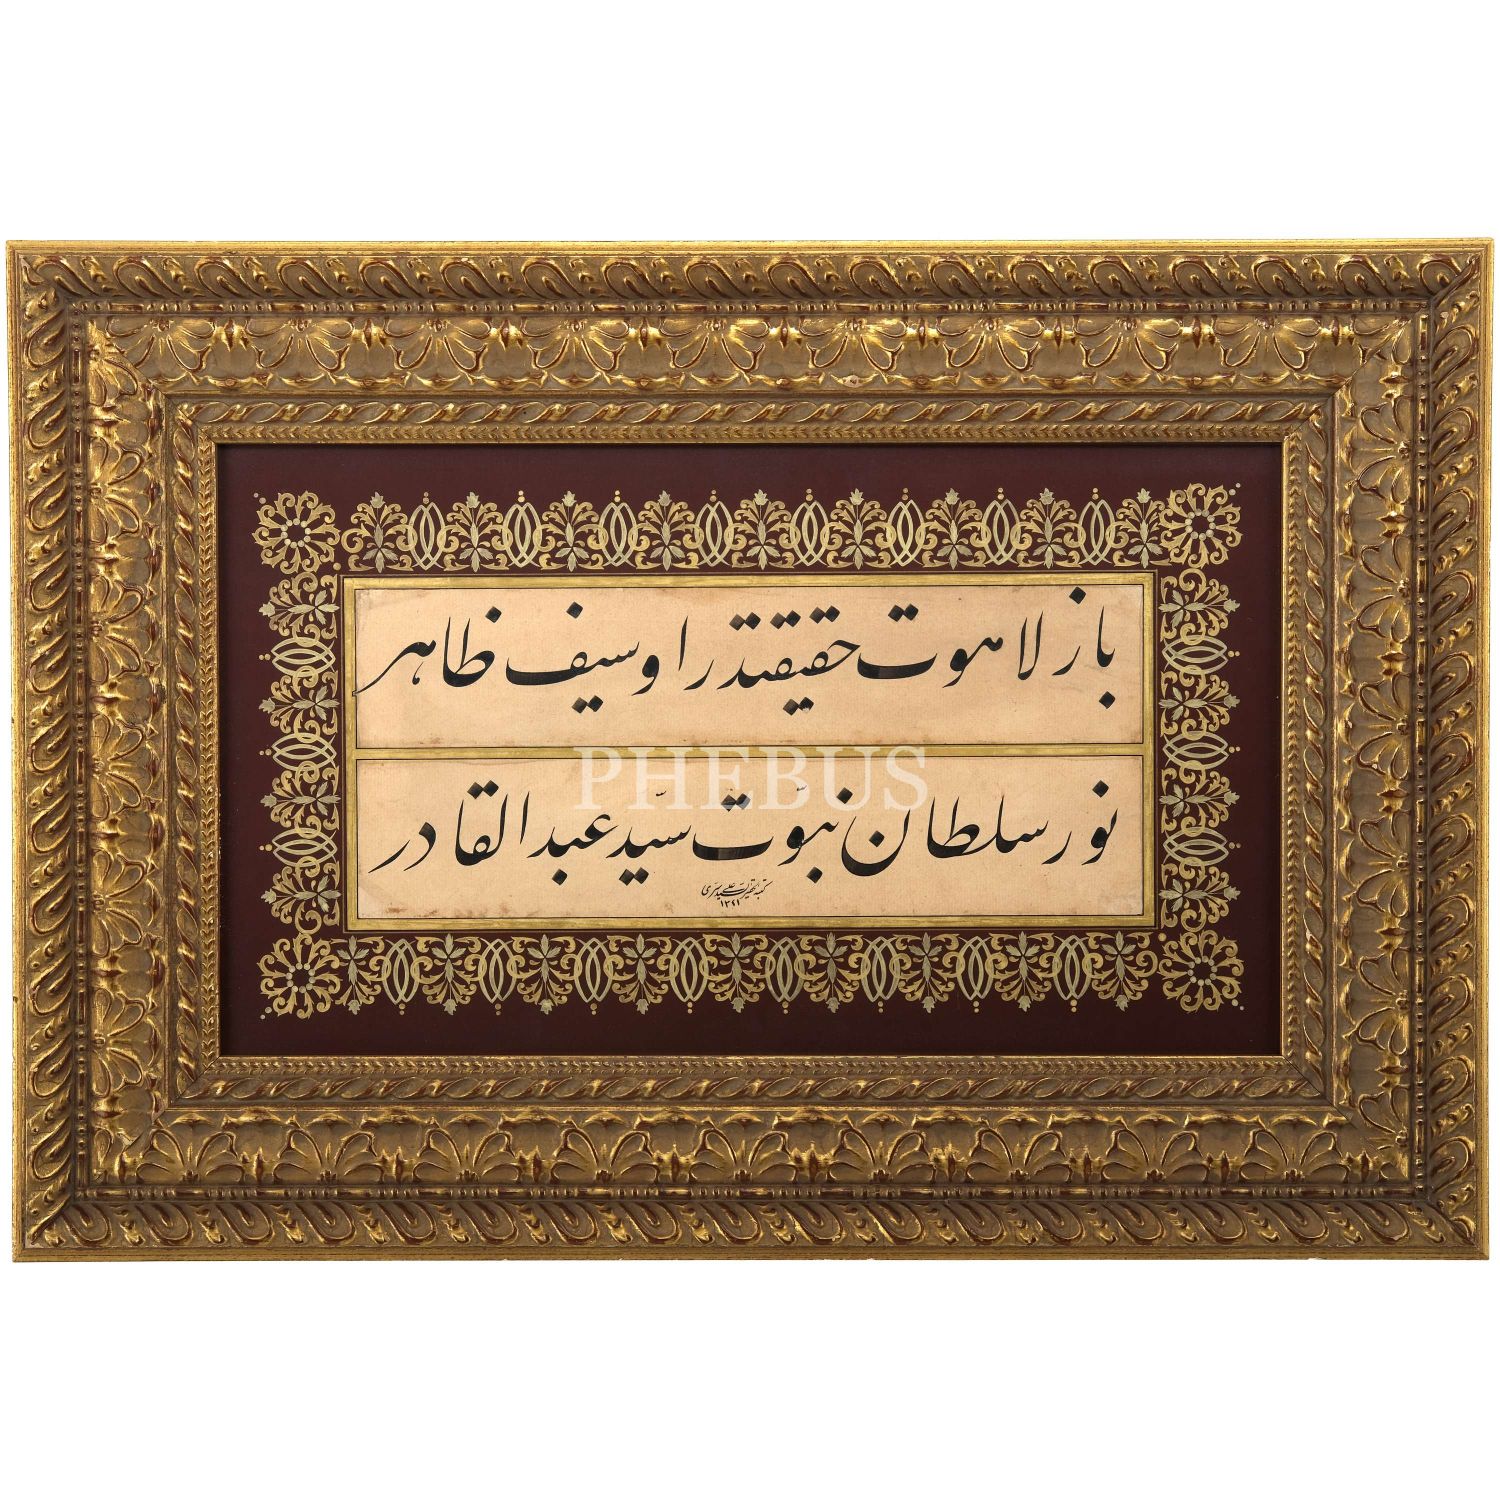 باز لاهوت حقيقتدر او سيف ظاهر
PHEBUS
نور سلطان نبوّت سيّد عبد القادر
كتبه الفقير
١٣٤١